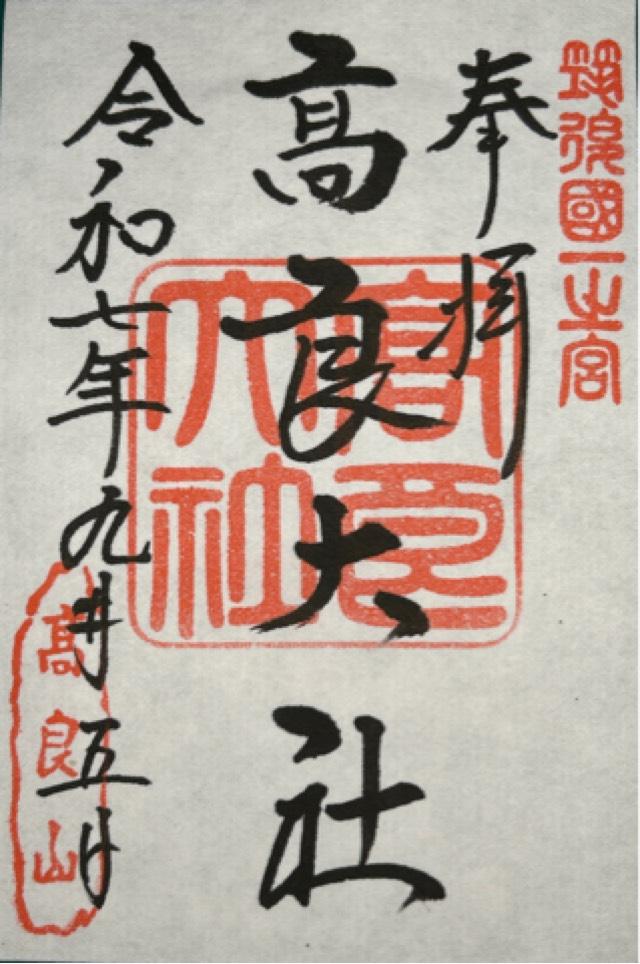 筑後國一之宮
奉拝
高良大社
高良大社
令和七年九月五日
高良山